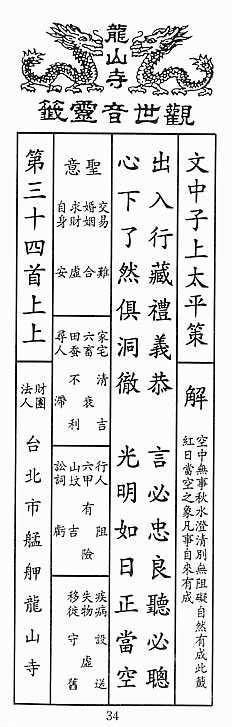 龍山寺
觀世音靈籤
文中子上太平策
解
空中無事秋水澄清別無阻礙自然有成此籤
紅日當空之象凡事自來有成
出入行藏禮義恭 言必忠良聽必聰
心下了然俱洞徹 光明如日正當空
聖意
交易 難
婚姻 合
求財 虛
自身 安
家宅 清吉
六畜 衰
田蚕 不利
尋人 滯
行人 阻
六甲 有險
山坟 吉
訟詞 虧
疾病 設送
失物 虛
移徙 守舊
第三十四首上上
財團
法人
台北市艋舺龍山寺
34